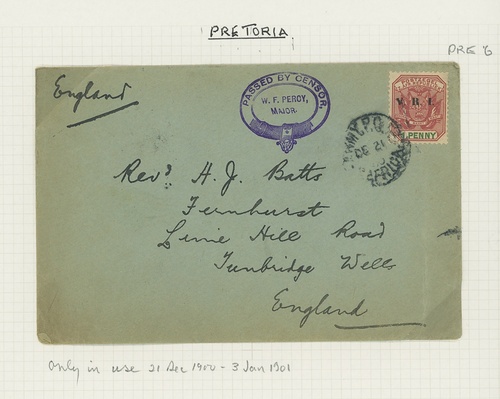 PRETORIA
PRE 6
England
PASSED BY CENSOR
W. F. PERCY,
MAJOR.
V. R. I.
PENNY
ARMY P.O.
DE 21
AFRICA
Revd H. J. Batts
Fernhurst
Lime Hill Road
Tunbridge Wells
England
Only in use 21 Dec 1900 - 3 Jan 1901